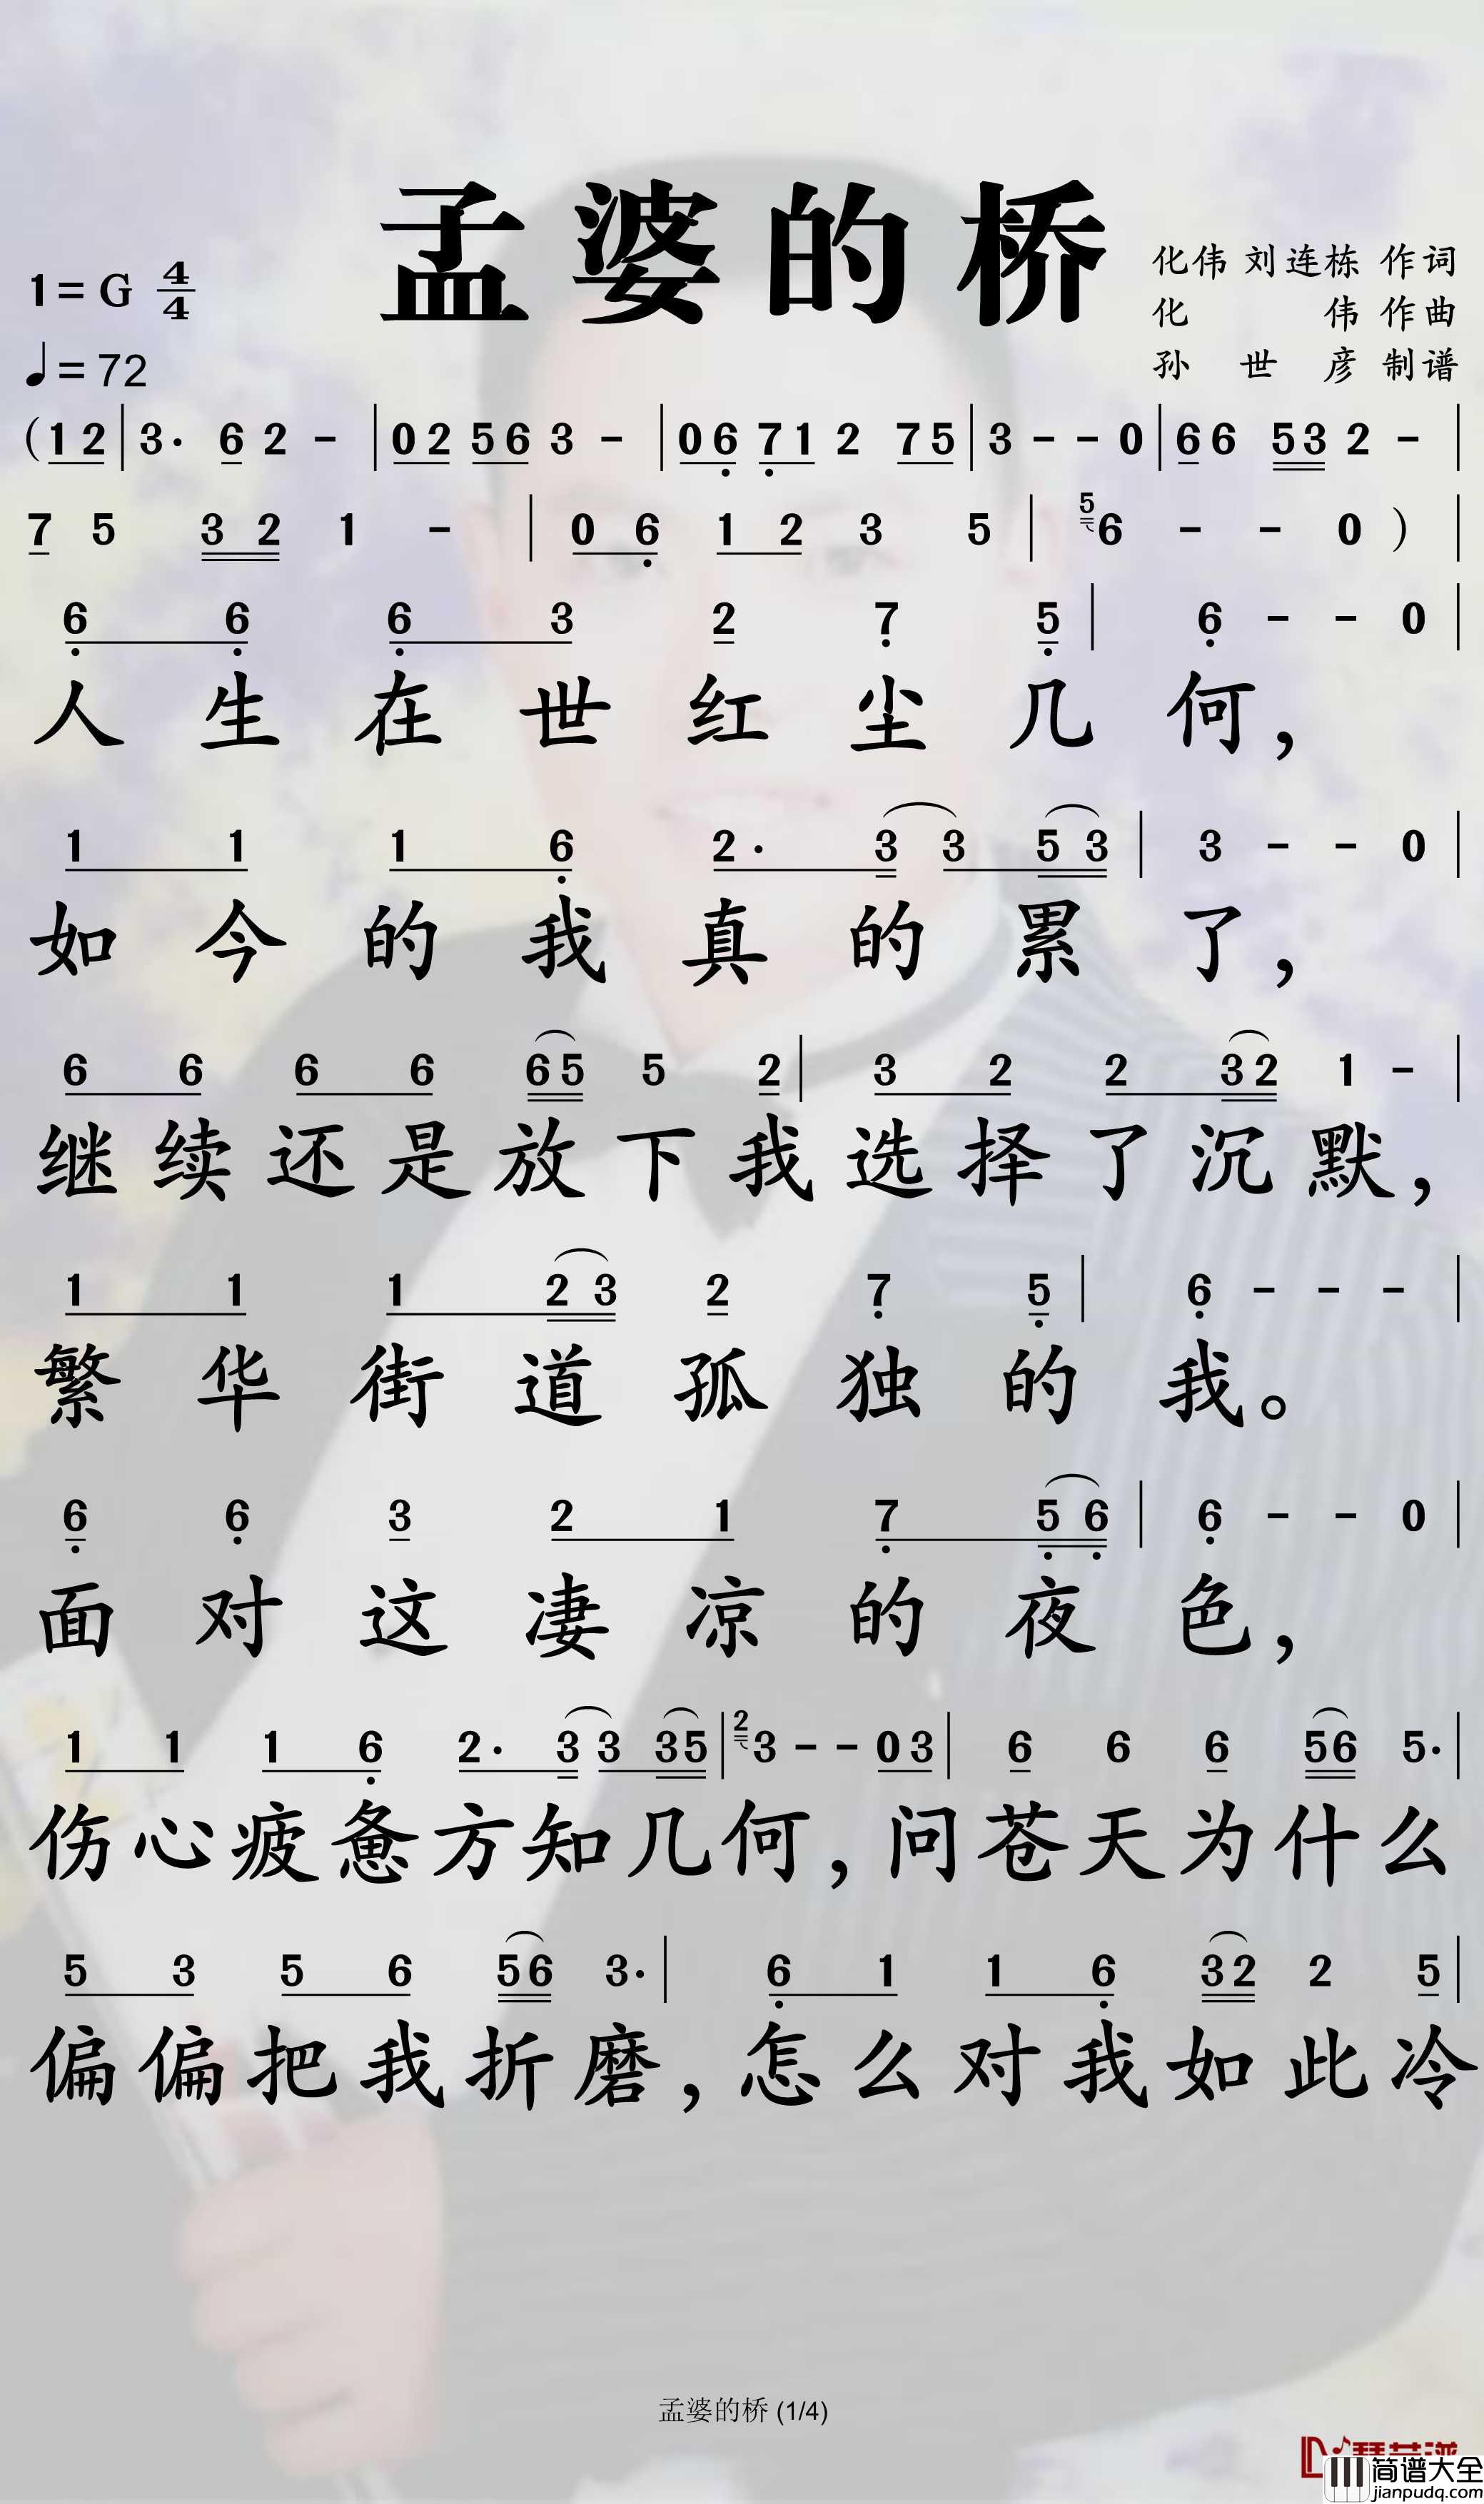 孟婆的桥
1=G 4/4
♩=72
化伟 刘连栋 作词
化 伟 作曲
孙 世 彦 制谱
(1 2 | 3· 6 2 - | 0 2 5 6 3 - | 0 6 7 1 2 7 5 | 3 - - 0 | 6 6 5 3 2 - |
7 5 3 2 1 - | 0 6 1 2 3 5 | 5 6 - - 0 ) |
6 6 6 3 2 7 5 | 6 - - 0 |
人生在世红尘几何，
1 1 1 6 2· 3 3 5 3 | 3 - - 0 |
如今的我真的累了，
6 6 6 6 6 5 5 2 | 3 2 2 3 2 1 - |
继续还是放下我选择了沉默，
1 1 1 2 3 2 7 5 | 6 - - - |
繁华街道孤独的我。
6 6 3 2 1 7 5 6 | 6 - - 0 |
面对这凄凉的夜色，
1 1 1 6 2· 3 3 3 5 | 2 3 - - 0 3 | 6 6 6 5 6 5· |
伤心疲惫方知几何，问苍天为什么
5 3 5 6 5 6 3· | 6 1 1 6 3 2 2 5 |
偏偏把我折磨，怎么对我如此冷
孟婆的桥 (1/4)
简谱大全
jianpudq.com